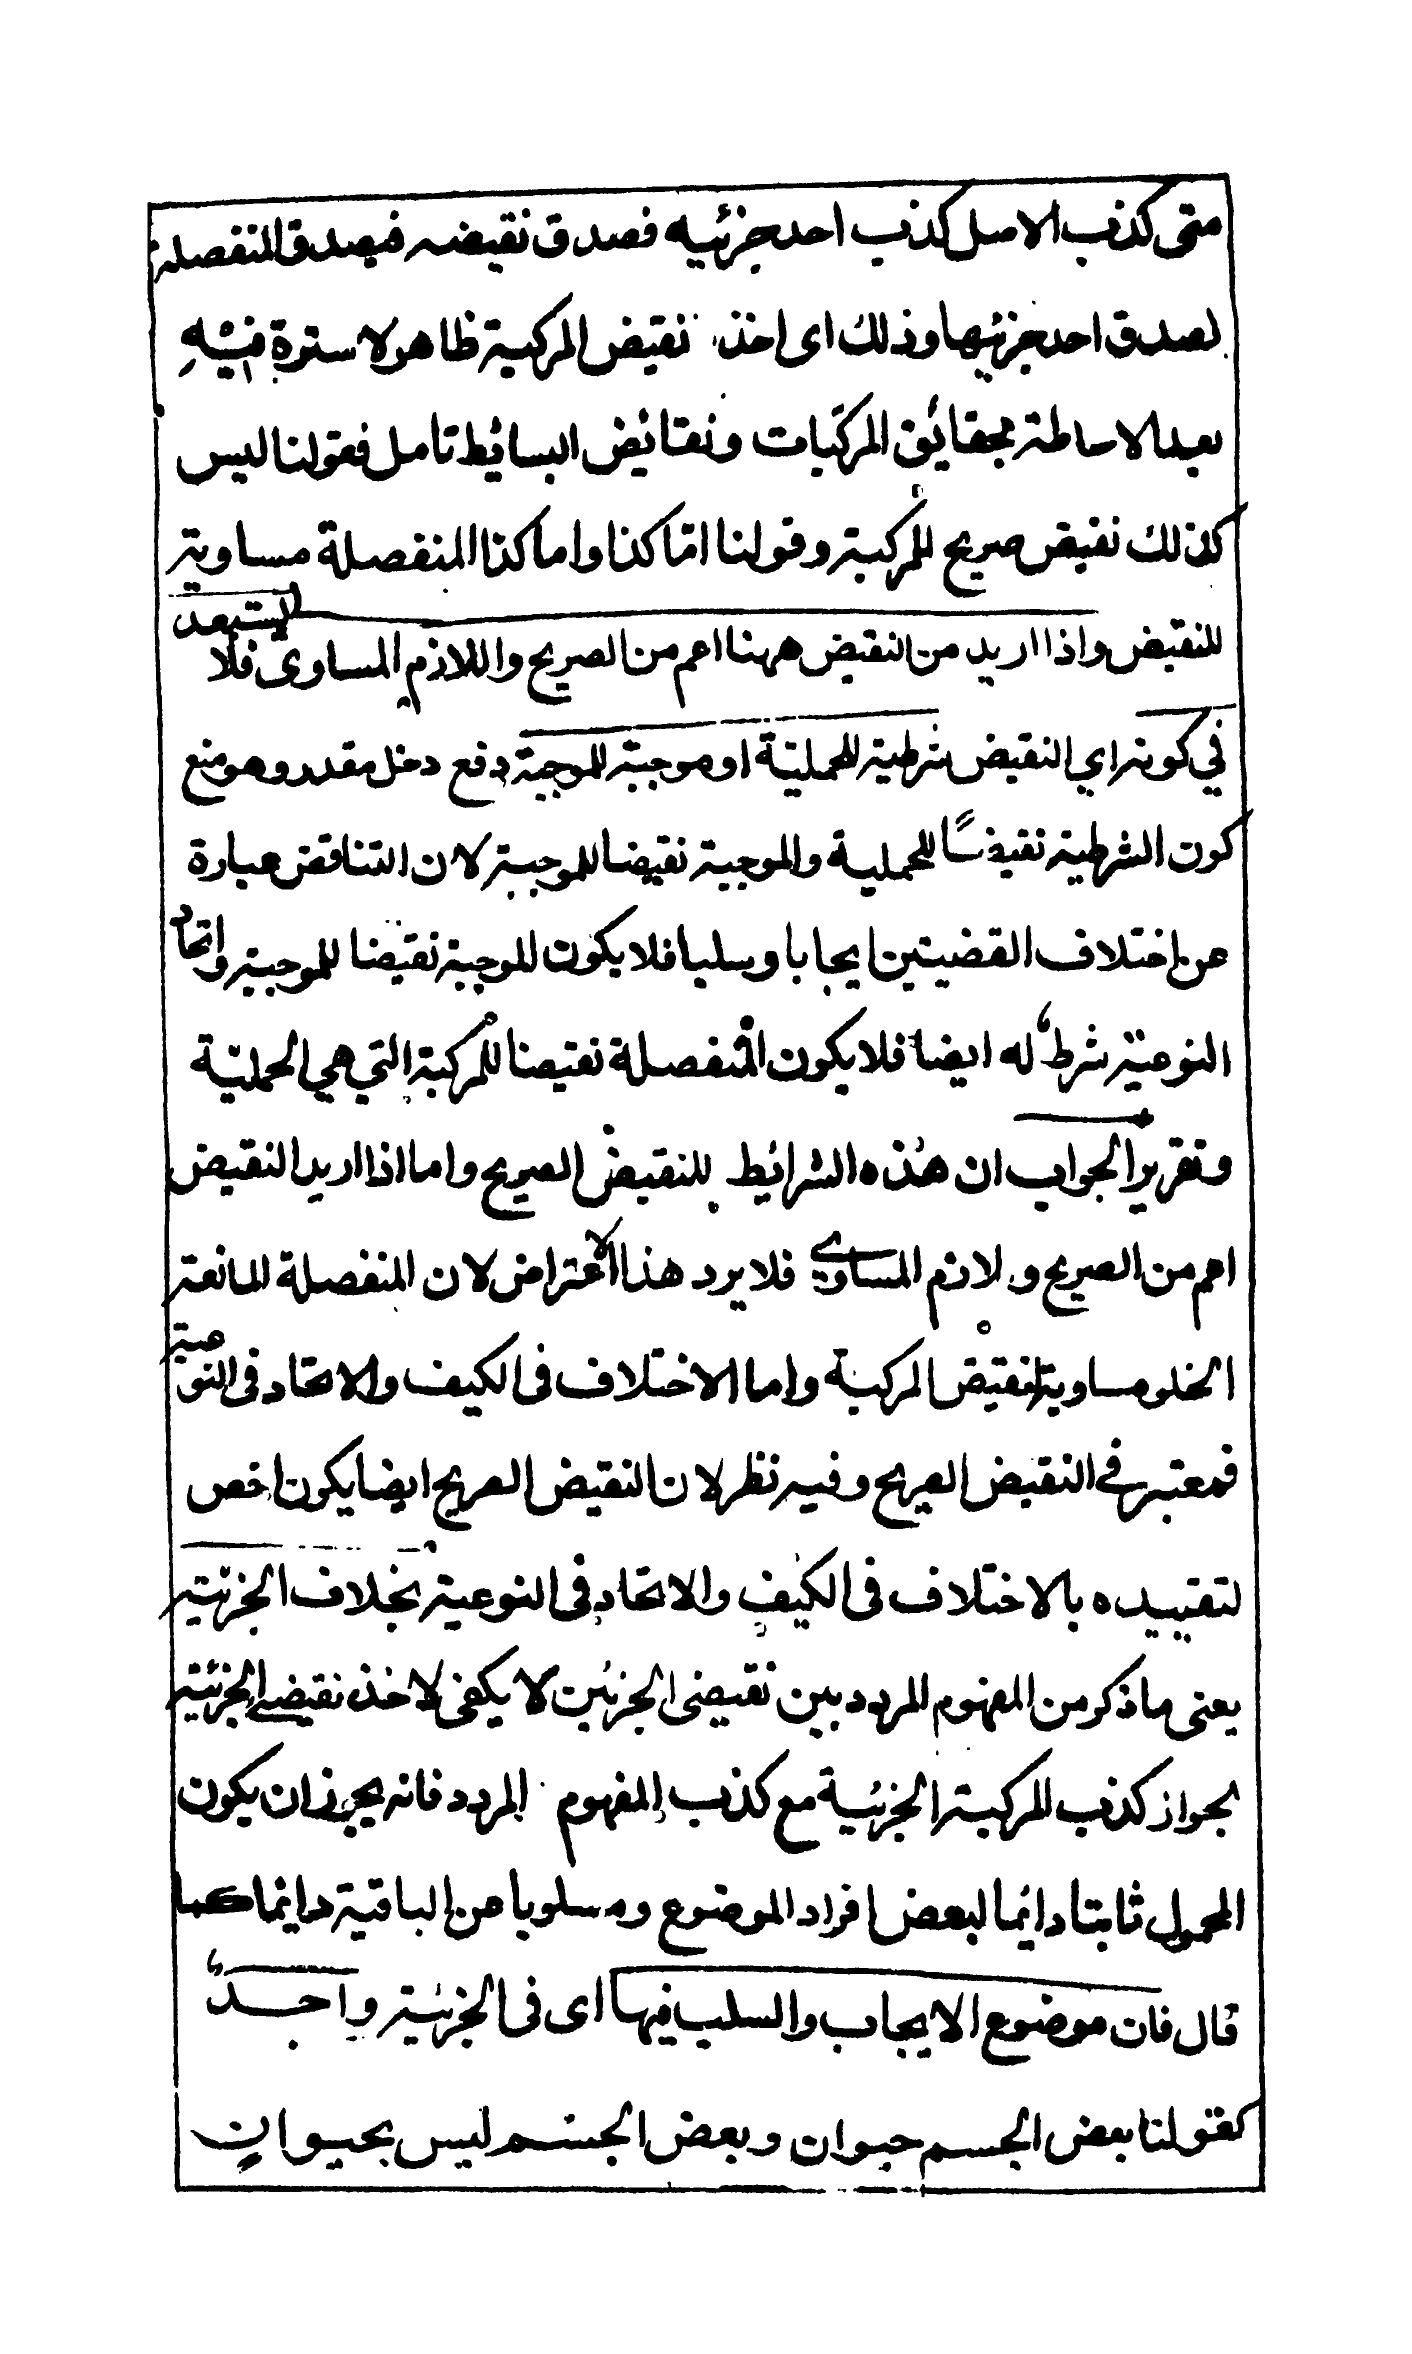 متى كذب الاصل كذب احد جزئيه فصدق نقيضه فيصدق المنفصلة
لصدق احد جزئيها وذلك اى اخذ نقيض المركبة ظاهر لا سترة فيه
بعد الاحاطة بحقائق المركبات ونقائض البسائط تامل فقولنا ليس
كذلك نقيض صريح للمركبة وقولنا امّا كذا واما كذا المنفصلة مساوية
للنقيض واذا اريد من النقيض ههنا اعم من الصريح واللازم المساوى فلا يستبعد
في كونه اي النقيض شرطية للحملية او موجبة للموجبة دفع دخل مقدر وهو منع
كون الشرطية نقيضًا للحملية والموجبة نقيضا للموجبة لان التناقض عبارة
عن اختلاف القضيتين ايجابا وسلبا فلا يكون الموجبة نقيضا للموجبة واتحاد
النوعية شرط له ايضا فلا يكون المنفصلة نقيضا للمركبة التي هي الحملية
وتقرير الجواب ان هذه الشرائط للنقيض الصريح واما اذا اريد النقيض
اعم من الصريح ولازم المساوي فلا يرد هذا الاعتراض لان المنفصلة المانعة
الخلو مساوية لنقيض المركبة واما الاختلاف فى الكيف والاتحاد فى النوعية
فمعتبر في النقيض الصريح وفيه نظر لان النقيض الصريح ايضا يكون اخص
لتقييده بالاختلاف فى الكيف والاتحاد فى النوعية بخلاف الجزئية
يعنى ما ذكر من المفهوم المردد بين نقيضى الجزئين لا يكفى لاخذ نقيض الجزئية
لجواز كذب المركبة الجزئية مع كذب المفهوم المردد فانه يجوز ان يكون
المحمول ثابتا دائما لبعض افراد الموضوع ومسلوبا عن الباقية دائما كما
قال فان موضوع الايجاب والسلب فيها اى فى الجزئية واحد
كقولنا بعض الجسم حيوان وبعض الجسم ليس بحيوان